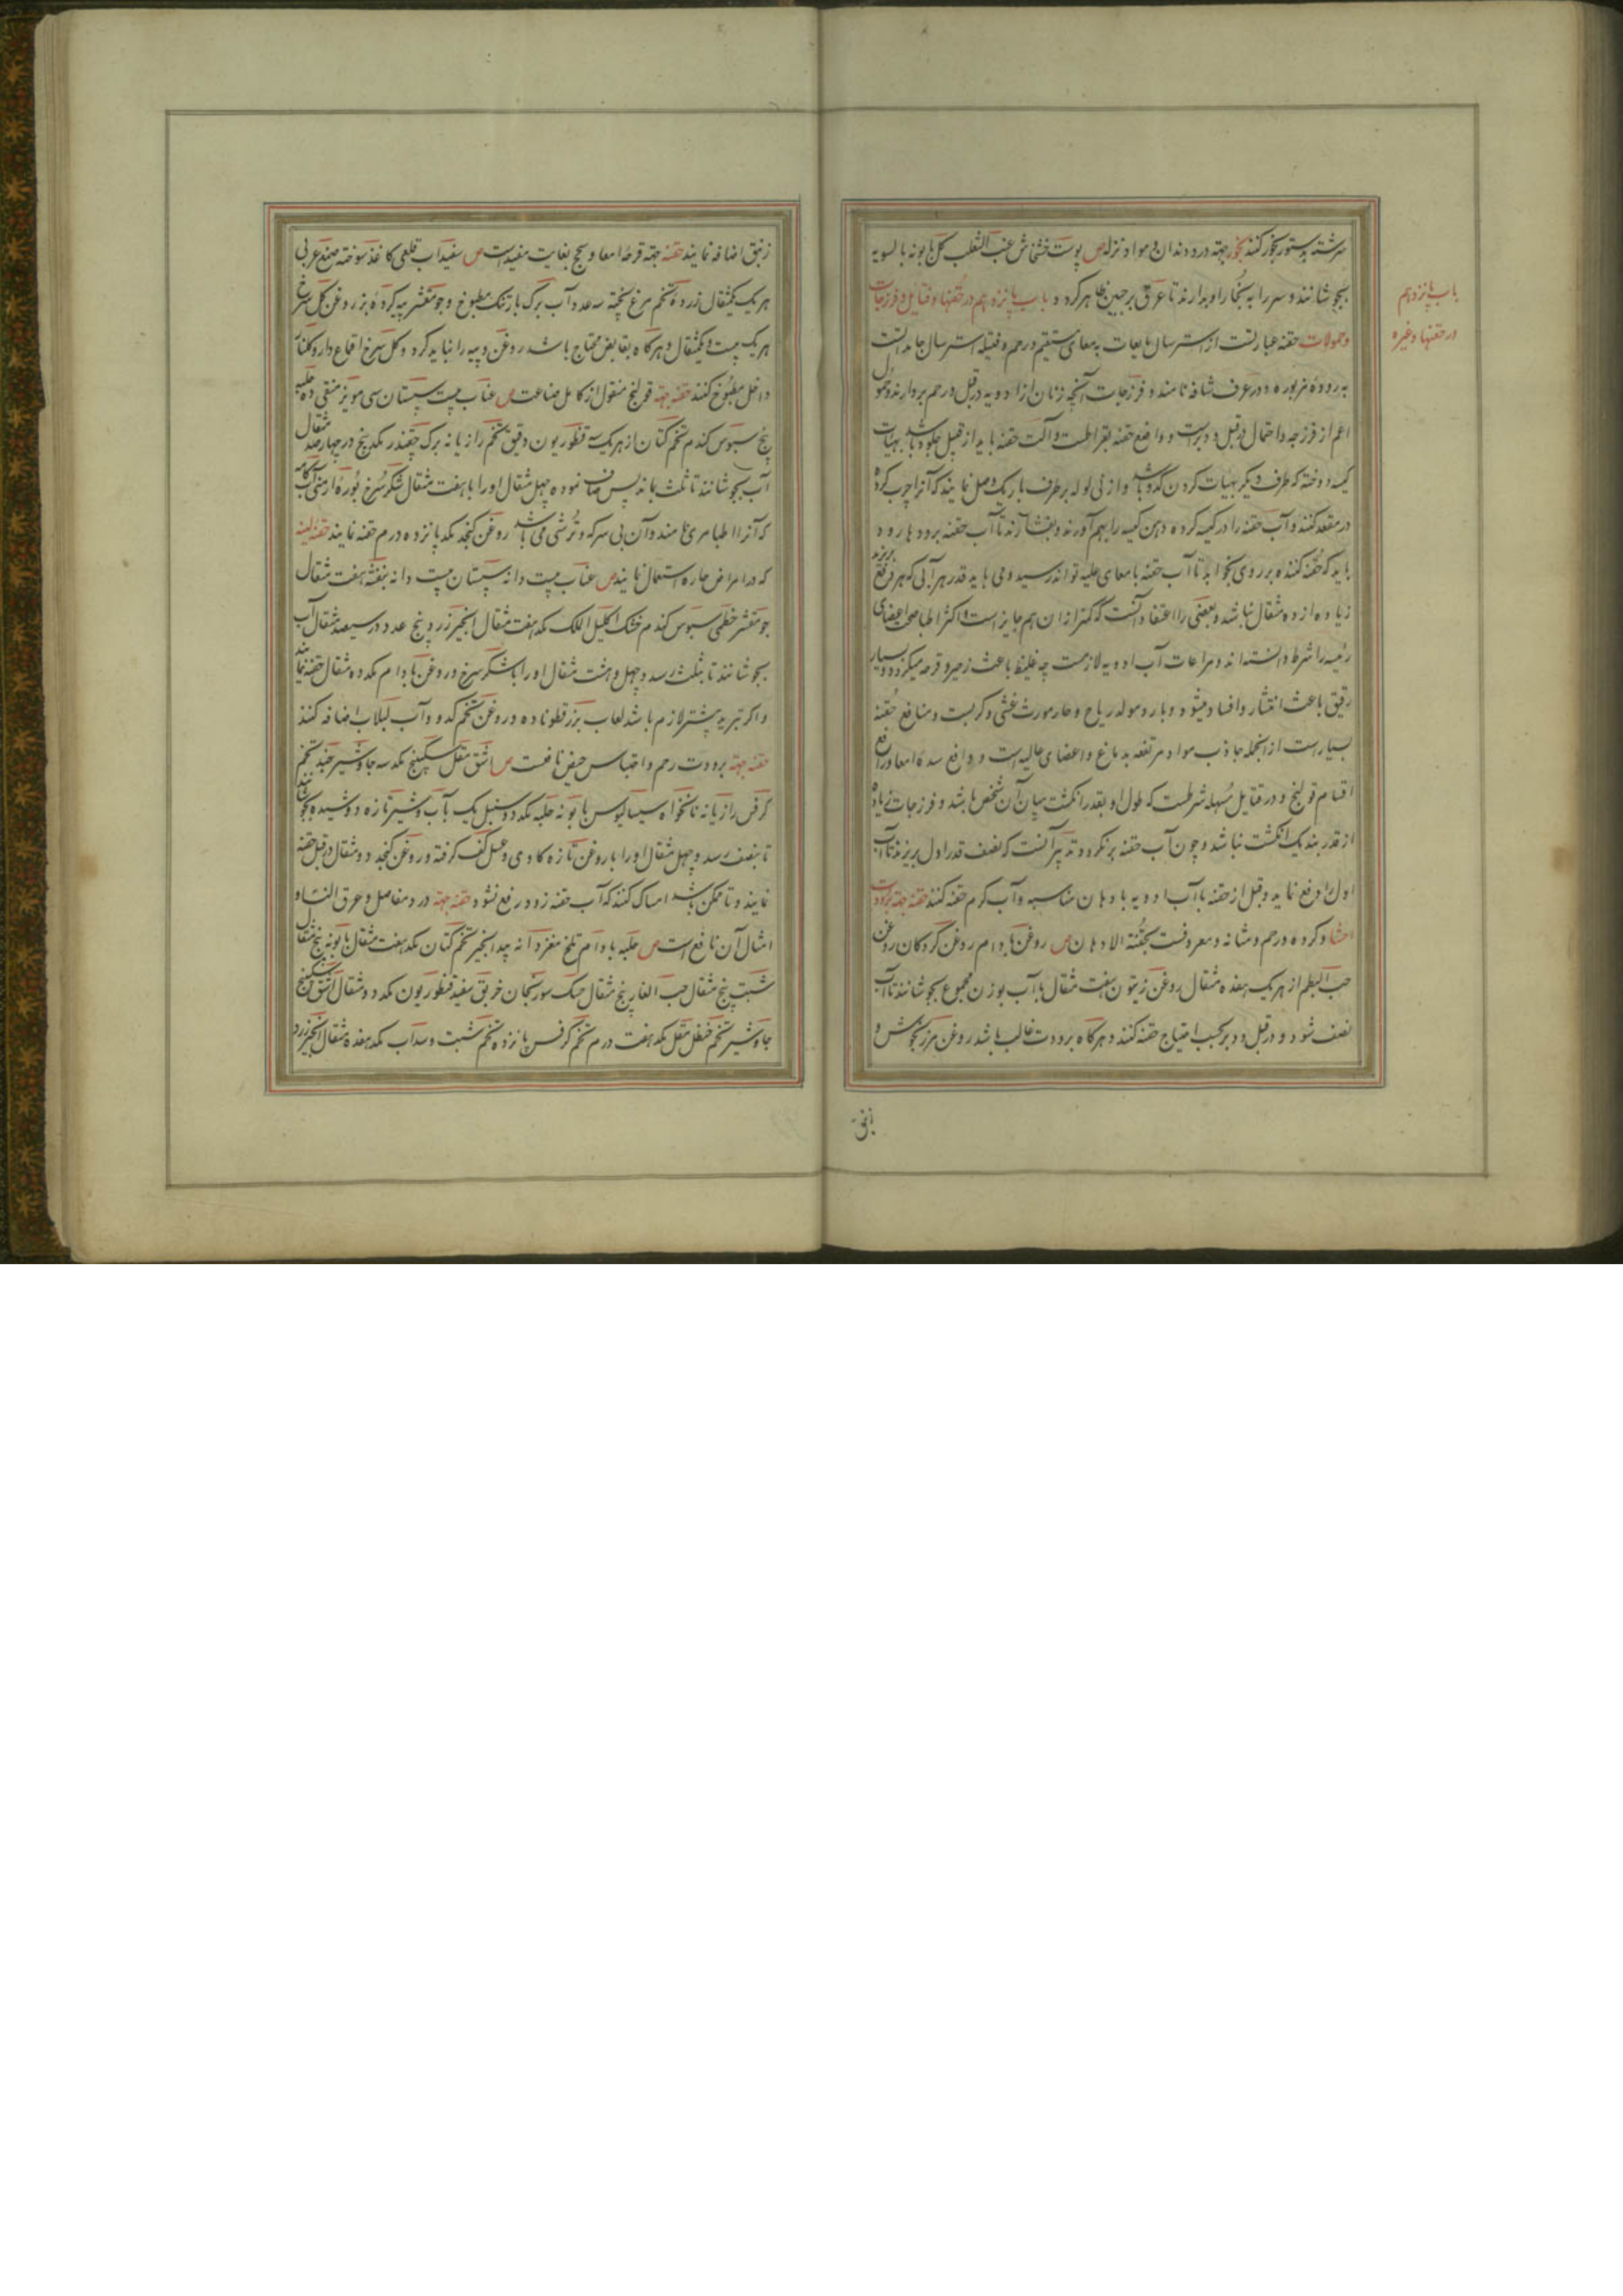 سرشته بدستور بخور کنند بخور جهته درد دندان و مواد نزله ص پوست خشخاش عنب الثعلب کل بابونه بالسویه
بجوشانند و سر را به بخار او بدارند تا عرق بر جبین ظاهر کردد باب پانزدهم در حقنها و فتایل و فرزجات
و حمولات حقنه عبارتست از استرسال مایعات به معای مستقیم و رحم و فتیله استرسال جامد است
باب پانزدهم
در حقنها و غیره
به روده مزبوره و در عرف شافه نامند و فرزجات آنچه زنان از ادویه در قبل و رحم بردارند و حمول
اعم از فرزجه و احتمال در قبل و دبرست و واضع حقنه بقراطست و آلت حقنه باید از قبیل جلود باشد بهیات
کیسه دوخته که طرف دیکر بهیات کردن کدو باشد و از نی لوله بر طرف باریک وصل نمایند که آنرا چرب کرده
در مقعد کنند و آب حقنه را در کیسه کرده دهن کیسه را بهم آورند و بفشارند تا آب حقنه برودها رود
باید که حقنه کننده بر روی بخوابد تا آب حقنه بامعای علیه تواند رسید و می باید قدر هر آبی که هر دفع بریزند
زیاده از ده مثقال نباشد و بعضی را اعتقاد آنست که کمتر از ان هم جایز است و اکثر اطبا صحت اعضای
رئیسه را شرط دانسته اند و مراعات آب ادویه لازمست چه غلیظ باعث زحیر و قرحه میکردد و بسیار
رقیق باعث انتشار و افساد میشود و بارد مولد ریاح و حار مورث غشی و کربست و منافع حقنه
بسیارست از انجمله جاذب مواد مرتفعه بدماغ و اعضای عالیه است و دافع سده امعا و رافع
اقسام قولنج و در فتایل مسهله شرطست که طول او بقدر انکشت میان آن شخص باشد و فرزجات زیاده
از قدر بند یک انکشت نباشد و چون آب حقنه برنکردد تدبیر آنست که نصف قدر اول بریزند تا آب
اول را دفع نماید و قبل از حقنه با آب ادویه با دهان مناسبه و آب کرم حقنه کنند حقنه جهته برودت
احشا و کرده و رحم و مثانه و معروفست بحقنة الادهان ص روغن بادام روغن کردکان روغن
حب البطم از هر یک هفده مثقال روغن زیتون هفت مثقال با آب بوزن مجموع بجوشانند تا آب
نصف شود و در قبل و دبر بحسب احتیاج حقنه کنند و هرکاه برودت غالب باشد روغن مرزنجوش و
زنبق
زنبق اضافه نمایند حقنه جهته قرحه امعا و سحج بغایت مفیدست ص سفیداب قلعی کاغذ سوخته صمغ عربی
هر یک یکمثقال زرده تخم مرغ پخته سه عدد آب برک بارتنک مطبوخ و جو مقشر پیه کرده بز روغن کل سرخ
هر یک بیست و یکمثقال و هرکاه بقابض محتاج باشد روغن و پیه را نباید کرد و کل سرخ اقماع دار و کلنار
داخل مطبوخ کنند حقنه جهته قولنج منقول از کامل صناعت ص عناب بیست سپستان سی مویز منقی ده حلبه
پنج سبوس کندم تخم کتان از هر یک سه قنطوریون دقیق تخم رازیانه برک چقندر مکد پنج در چهارصد مثقال
آب بجوشانند تا ثلث بماند پس صاف نموده چهل مثقال او را با هفت مثقال شکر سرخ بوره ارمنی آب کامه
که آنرا اطبا مری نامند و آن بی سرکه و ترشی می باشد روغن کنجد مکد پانزده درم حقنه نمایند حقنه لینه
که در امراض حاره استعمال نمایند ص عناب بیست دانه سپستان بیست دانه بنفشه هفت مثقال
جو مقشر خطمی سبوس کندم خشک اکلیل الملک مکد هفت مثقال انجیر زرد پنج عدد در سیصد مثقال آب
بجوشانند تا بثلث رسد و چهل و هشت مثقال او را با شکر سرخ و روغن بادام مکد ده مثقال حقنه نمایند
و اکر تبرید بیشتر لازم باشد لعاب بزرقطونا ده و روغن تخم کدو و آب لبلاب اضافه کنند
حقنه جهته برودت رحم و احتباس حیض نافعست ص اشق مقل سکبینج مکد سه جاوشیر جند تخم
کرفس رازیانه نانخواه سیسالیوس بابونه حلبه مکد دو سنبل یک بآب و شیر تازه دوشیده بجوشانند
تا بنصف رسد و چهل مثقال او را با روغن تازه کاوی و عسل کف کرفته و روغن کنجد دو مثقال در قبل حقنه
نمایند و تا ممکن باشد امساک کنند که آب حقنه زود رفع نشود حقنه جهته درد مفاصل و عرق النسا و
امثال آن نافع است ص حلبه بادام تلخ مغز دانه بیدانجیر تخم کتان مکد هفت مثقال بابونه پنج مثقال
شبت پنج مثقال حب الغار پنج مثقال حسک سورنجان خربق سفید قنطوریون مکد دو مثقال اشق سکبینج
جاوشیر تخم حنظل مقل مکد هفت درم تخم کرفس پانزده تخم شبت و سداب مکد هفده مثقال انجیر زرد